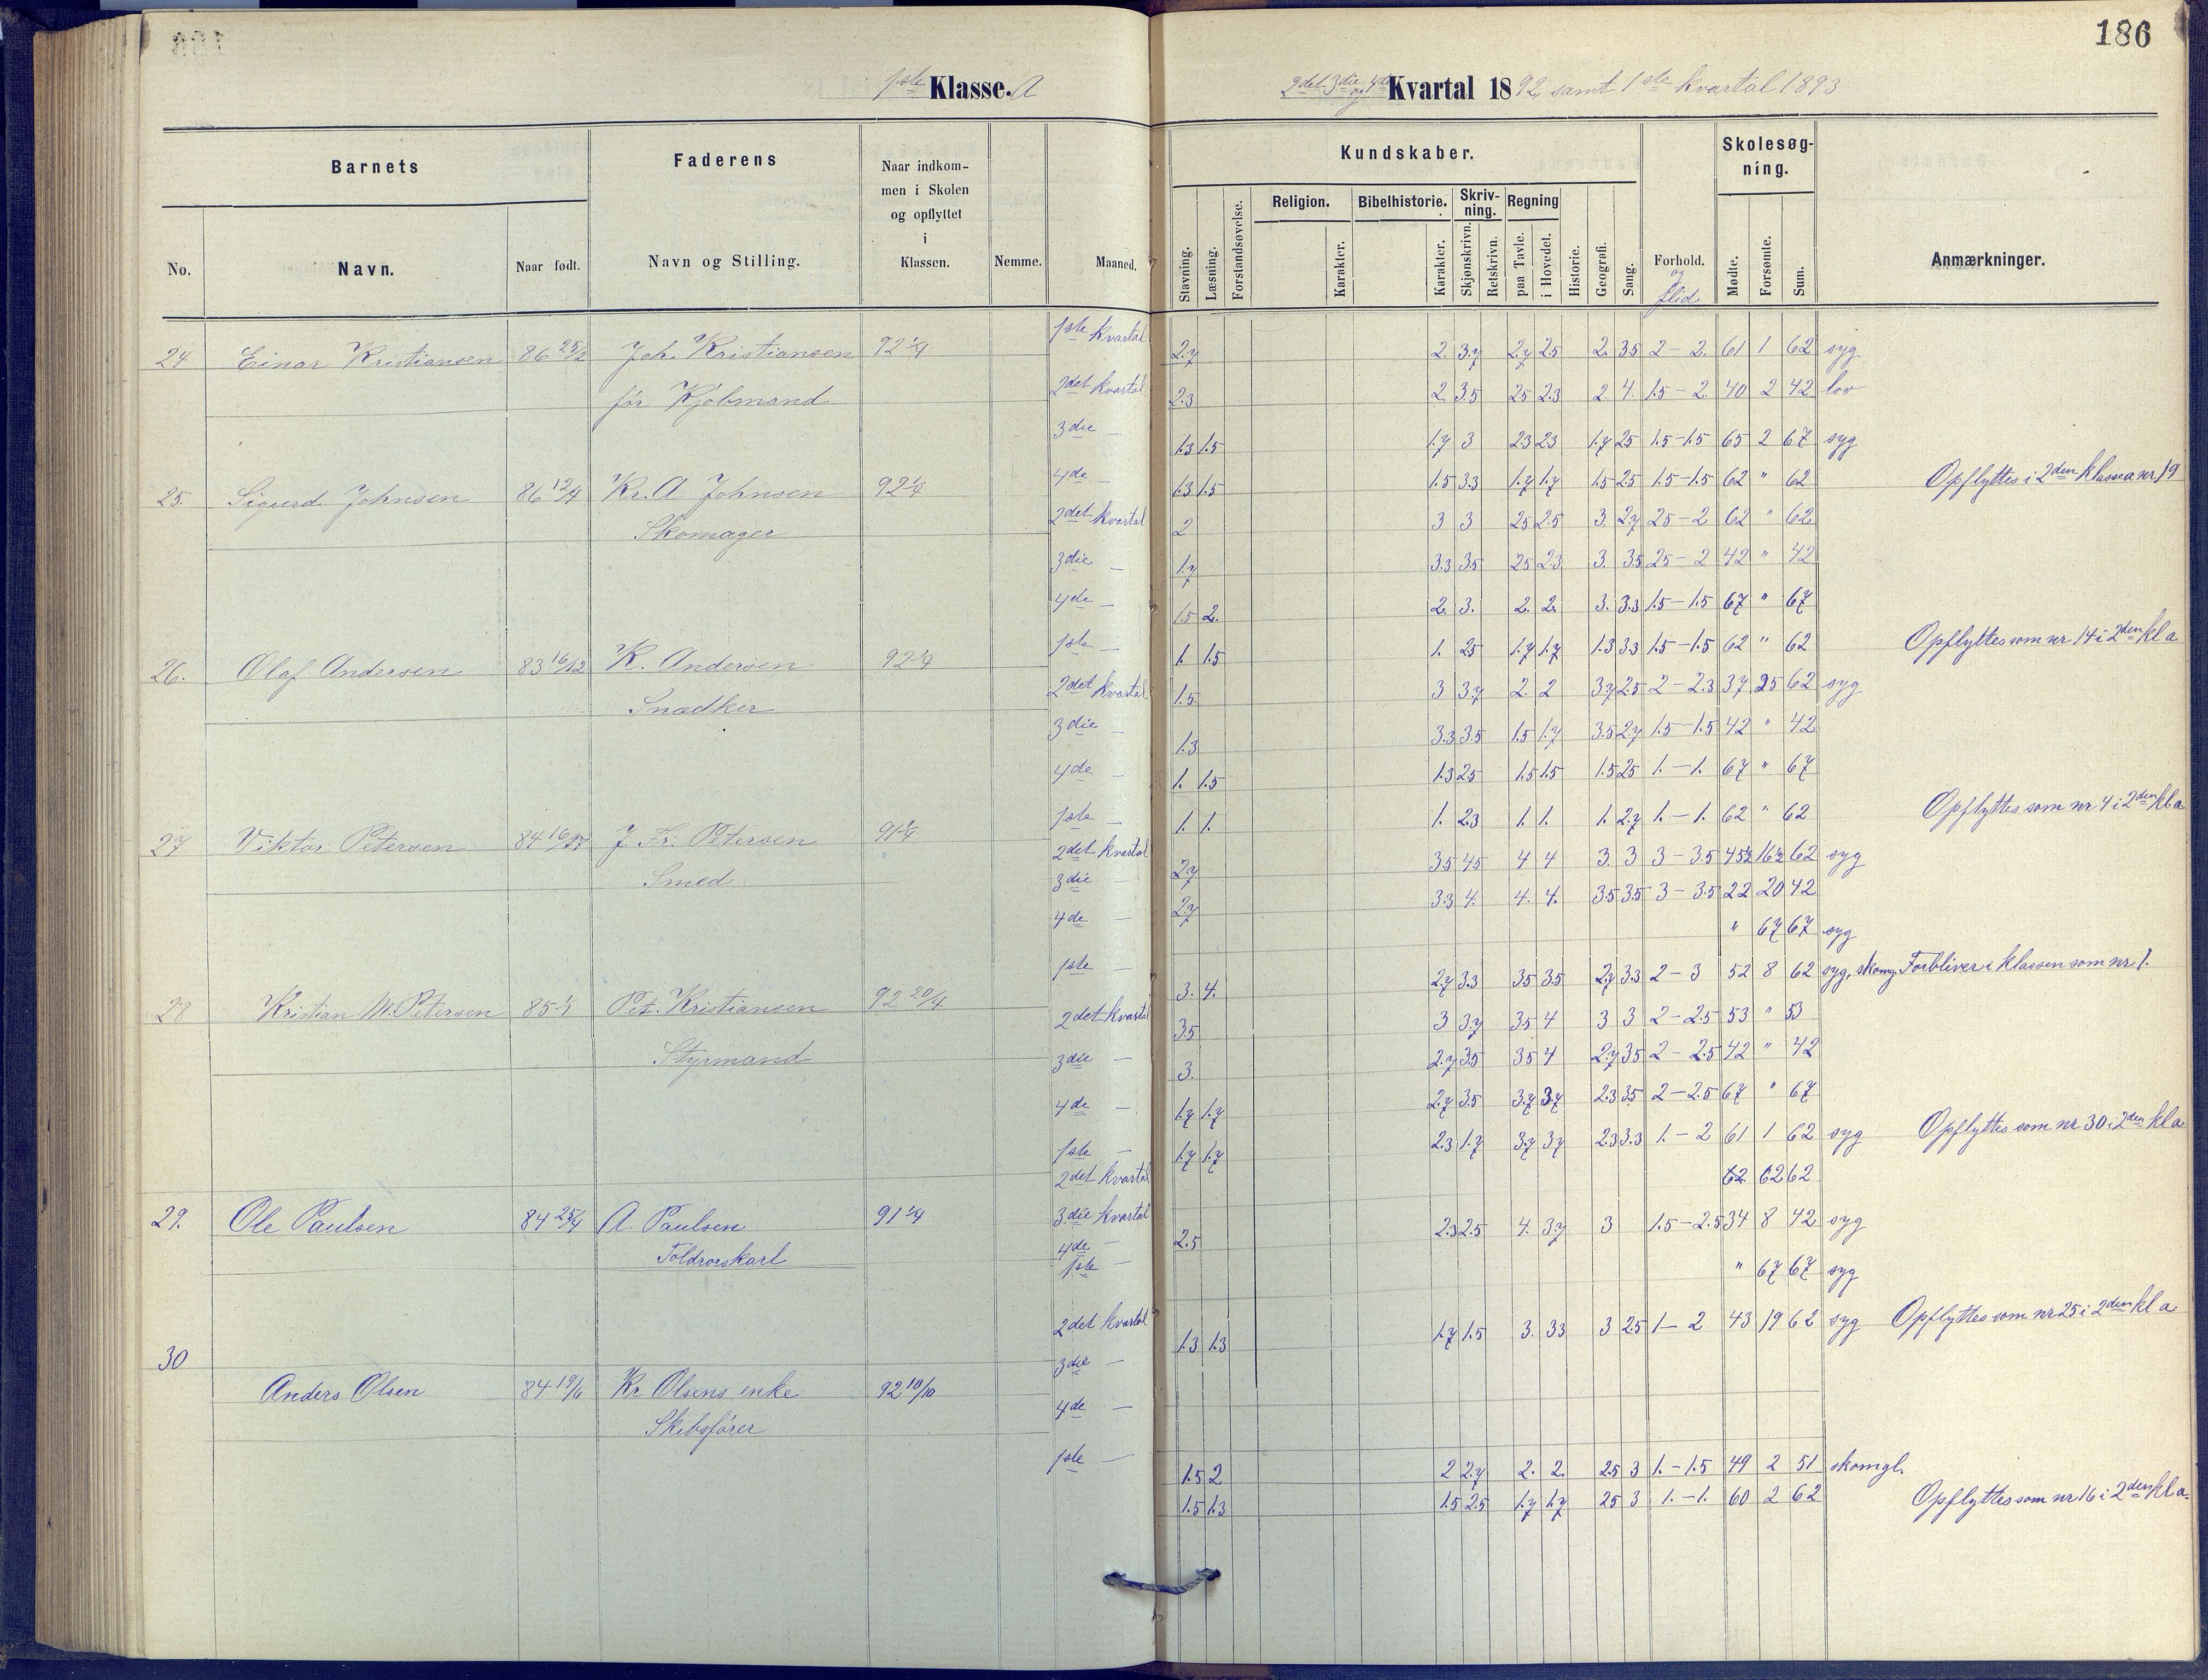 186
1ste Klasse. A
2det 3die og 4de Kvartal 1892, samt 1ste kvartal 1893
Barnets
Faderens
Naar indkommen i Skolen og opflyttet i Klassen.
Kundskaber.
Skolesøgning.
Religion. Bibelhistorie. Skrivning. Regning
No. Navn. Naar født. Navn og Stilling. Nemme. Maaned.
Stavning. Læsning. Forstandsøvelse. Karakter. Karakter. Skjønskrivn. Retskrivn. paa Tavle. i Hovedet. Historie. Geografi. Sang. Forhold. og flid Mødte. Forsømte. Sum. Anmærkninger.
1ste kvartal
24. Einar Kristiansen 86 25/2 Joh. Kristiansen 92 1/4 2.7 2. 3.7 2.7 2.5 2. 3.5 2-2. 61 1 62 syg
før Kjøbmand 2det kvartal 2.3 2. 3.5 2.5 2.3 2. 4. 1.5-2. 40 2 42 lov
3die — 1.3 1.5 1.7 3 2.3 2.3 1.7 2.5 1.5-1.5 65 2 67 syg
4de — 1.3 1.5 1.5 3.3 1.7 1.7 1.5 2.5 1.5-1.5 62 " 62 Opflyttes i 2den klasse a nr 19
25. Sigurd Johnsen 86 12/4 Kr. A Johnsen 92 1/4
Skomager 2det kvartal 2 3 3 2.5 2.5 3. 2.7 2.5-2 62 " 62
3die — 1.7 3.3 3.5 2.5 2.3 3. 3.5 2.5-2 42 " 42
4de — 1.5 2. 2. 3. 2. 2. 3. 3.3 1.5-1.5 67 " 67
1ste — 1. 1.5 1. 2.5 1.7 1.7 1.3 3.3 1.5-1.5 62 " 62 Opflyttes som nr 14 i 2den kl a
26. Olaf Andersen 83 16/12 K. Andersen 92 1/4
Snedker 2det kvartal 1.5 3 3.7 2. 2 3.7 2.5 2-2.3 37 25 62 syg
3die — 1.3 3.3 3.5 1.5 1.7 3.5 2.7 1.5-1.5 42 " 42
4de — 1. 1.5 1.3 2.5 1.5 1.5 1.5 2.5 1.-1. 67 " 67
1ste — 1. 1. 1. 2.3 1. 1. 1. 2.7 1.-1. 62 " 62 Opflyttes som nr 4 i 2den kl a
27 Viktor Petersen J. Fr. Petersen 91 1/4
Smed 2det kvartal 2.7 3.5 4.5 4 4 3. 3 3-3.5 45½ 16½ 62 syg
3die — 2.7 3.3 4. 4. 4. 3.5 3.5 3-3.5 22 20 42
4de — " 67 67 syg
1ste — 3. 4. 2.7 3.3 3.5 3.5 2.7 3.3 2-3 52 8 62 syg, skomg. Forbliver i klassen som nr 1.
28 Kristian M. Petersen Pet. Kristiansen 92 20/4
Styrmand 2det kvartal 3.5 3 3.7 3.5 4 3 3 2-2.5 53 " 53
3die — 3. 2.7 3.5 3.5 4 2.7 3.5 2-2.5 42 " 42
4de — 1.7 1.7 2.7 3.5 3.7 3.7 2.3 3.5 2-2.5 67 " 67
1ste — 1.7 1.7 2.3 1.7 3.7 3.7 2.3 3.3 1.-2 61 1 62 syg Opflyttes som nr 30 i 2den kl a
2det kvartal 62 62 62
29. Ole Paulsen 84 25/4 A. Paulsen 91 1/4
Toldrorskarl 3die kvartal 2.5 2.3 2.5 4. 3.7 3 1.5-2.5 34 8 42 syg
4de — " 67 67 syg
1ste — 1.3 1.3 1.7 1.5 3. 3.3 3 2.5 1-2 43 19 62 syg Opflyttes som nr 25 i 2den kl a
30 Anders Olsen 84 19/6 Kr Olsens enke 92 10/10
Skibsfører 2det kvartal
3die —
4de — 1.5 2 2 2.7 2. 2. 2.5 3 1.-1.5 49 2 51 skomgl.
1ste — 1.5 1.3 1.5 2.5 1.7 1.7 2.5 3 1.-1. 60 2 62 Opflyttes som nr 16 i 2den kl a.